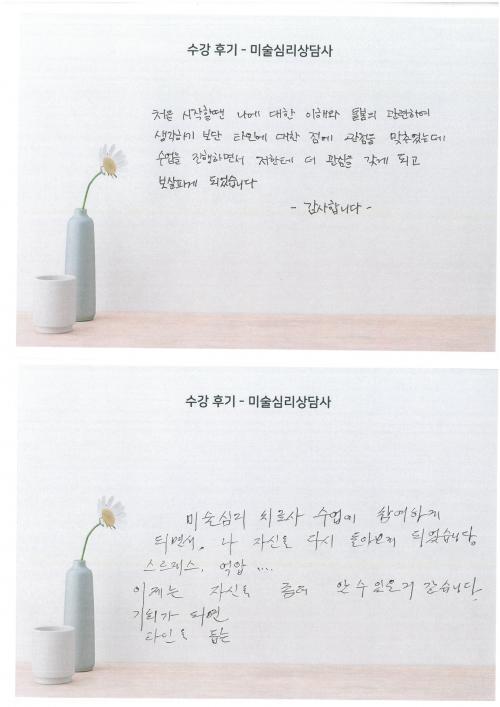 수강 후기 - 미술심리상담사
처음 시작할땐 나에 대한 이해와 돌봄의 관련하여
생각하기 보단 타인에 대한 점에 관점을 맞추었는데
수업을 진행하면서 저한테 더 관심을 갖게 되고
보살피게 되었습니다
- 감사합니다 -
수강 후기 - 미술심리상담사
미술심리 치료사 수업에 참여하게
되면서, 나 자신을 다시 돌아보게 되었습니다
스트레스, 억압 ....
이제는 자신을 좀더 알 수 있을거 같습니다.
기회가 되면
타인을 돕는